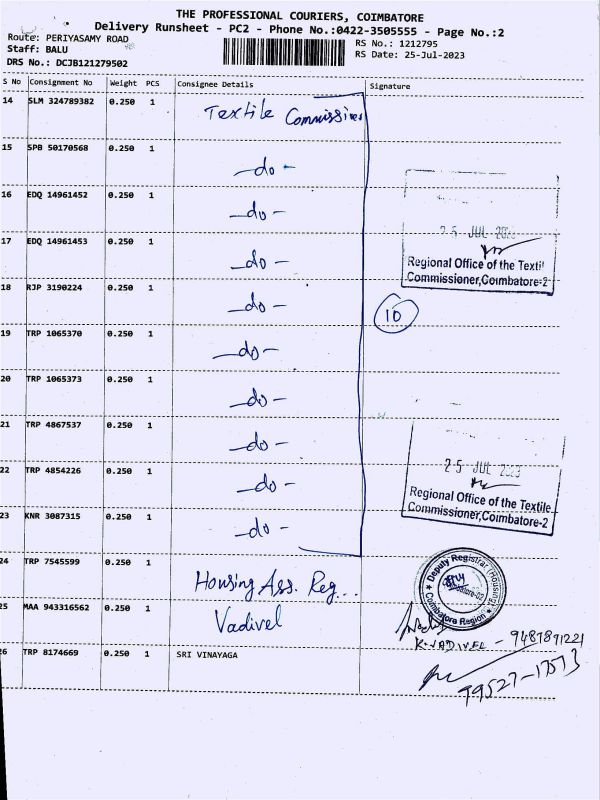 THE PROFESSIONAL COURIERS, COIMBATORE
Delivery Runsheet - PC2 - Phone No.:0422-3505555 - Page No.:2
Route: PERIYASAMY ROAD
RS No.: 1212795
Staff: BALU
RS Date: 25-Jul-2023
DRS No.: DCJB121279502
S No Consignment No Weight PCS Consignee Details Signature
14 SLM 324789382 0.250 1 Textile Commissioner
15 SPB 50170568 0.250 1 -do-
16 EDQ 14961452 0.250 1 -do-
17 EDQ 14961453 0.250 1 -do-
18 RJP 3190224 0.250 1 -do-
19 TRP 1065370 0.250 1 -do-
20 TRP 1065373 0.250 1 -do-
21 TRP 4867537 0.250 1 -do-
22 TRP 4854226 0.250 1 -do-
23 KNR 3087315 0.250 1 -do-
24 TRP 7545599 0.250 1 Housing Ass. Reg...
25 MAA 943316562 0.250 1 Vadivel
26 TRP 8174669 0.250 1 SRI VINAYAGA
25 JUL 2023
Regional Office of the Textil
Commissioner,Coimbatore-2
10
25 JUL 2023
Regional Office of the Textile
Commissioner,Coimbatore-2
Deputy Registrar (Housing)
Coimbatore Region
K.VADIVEL - 9487871221
79527-17573